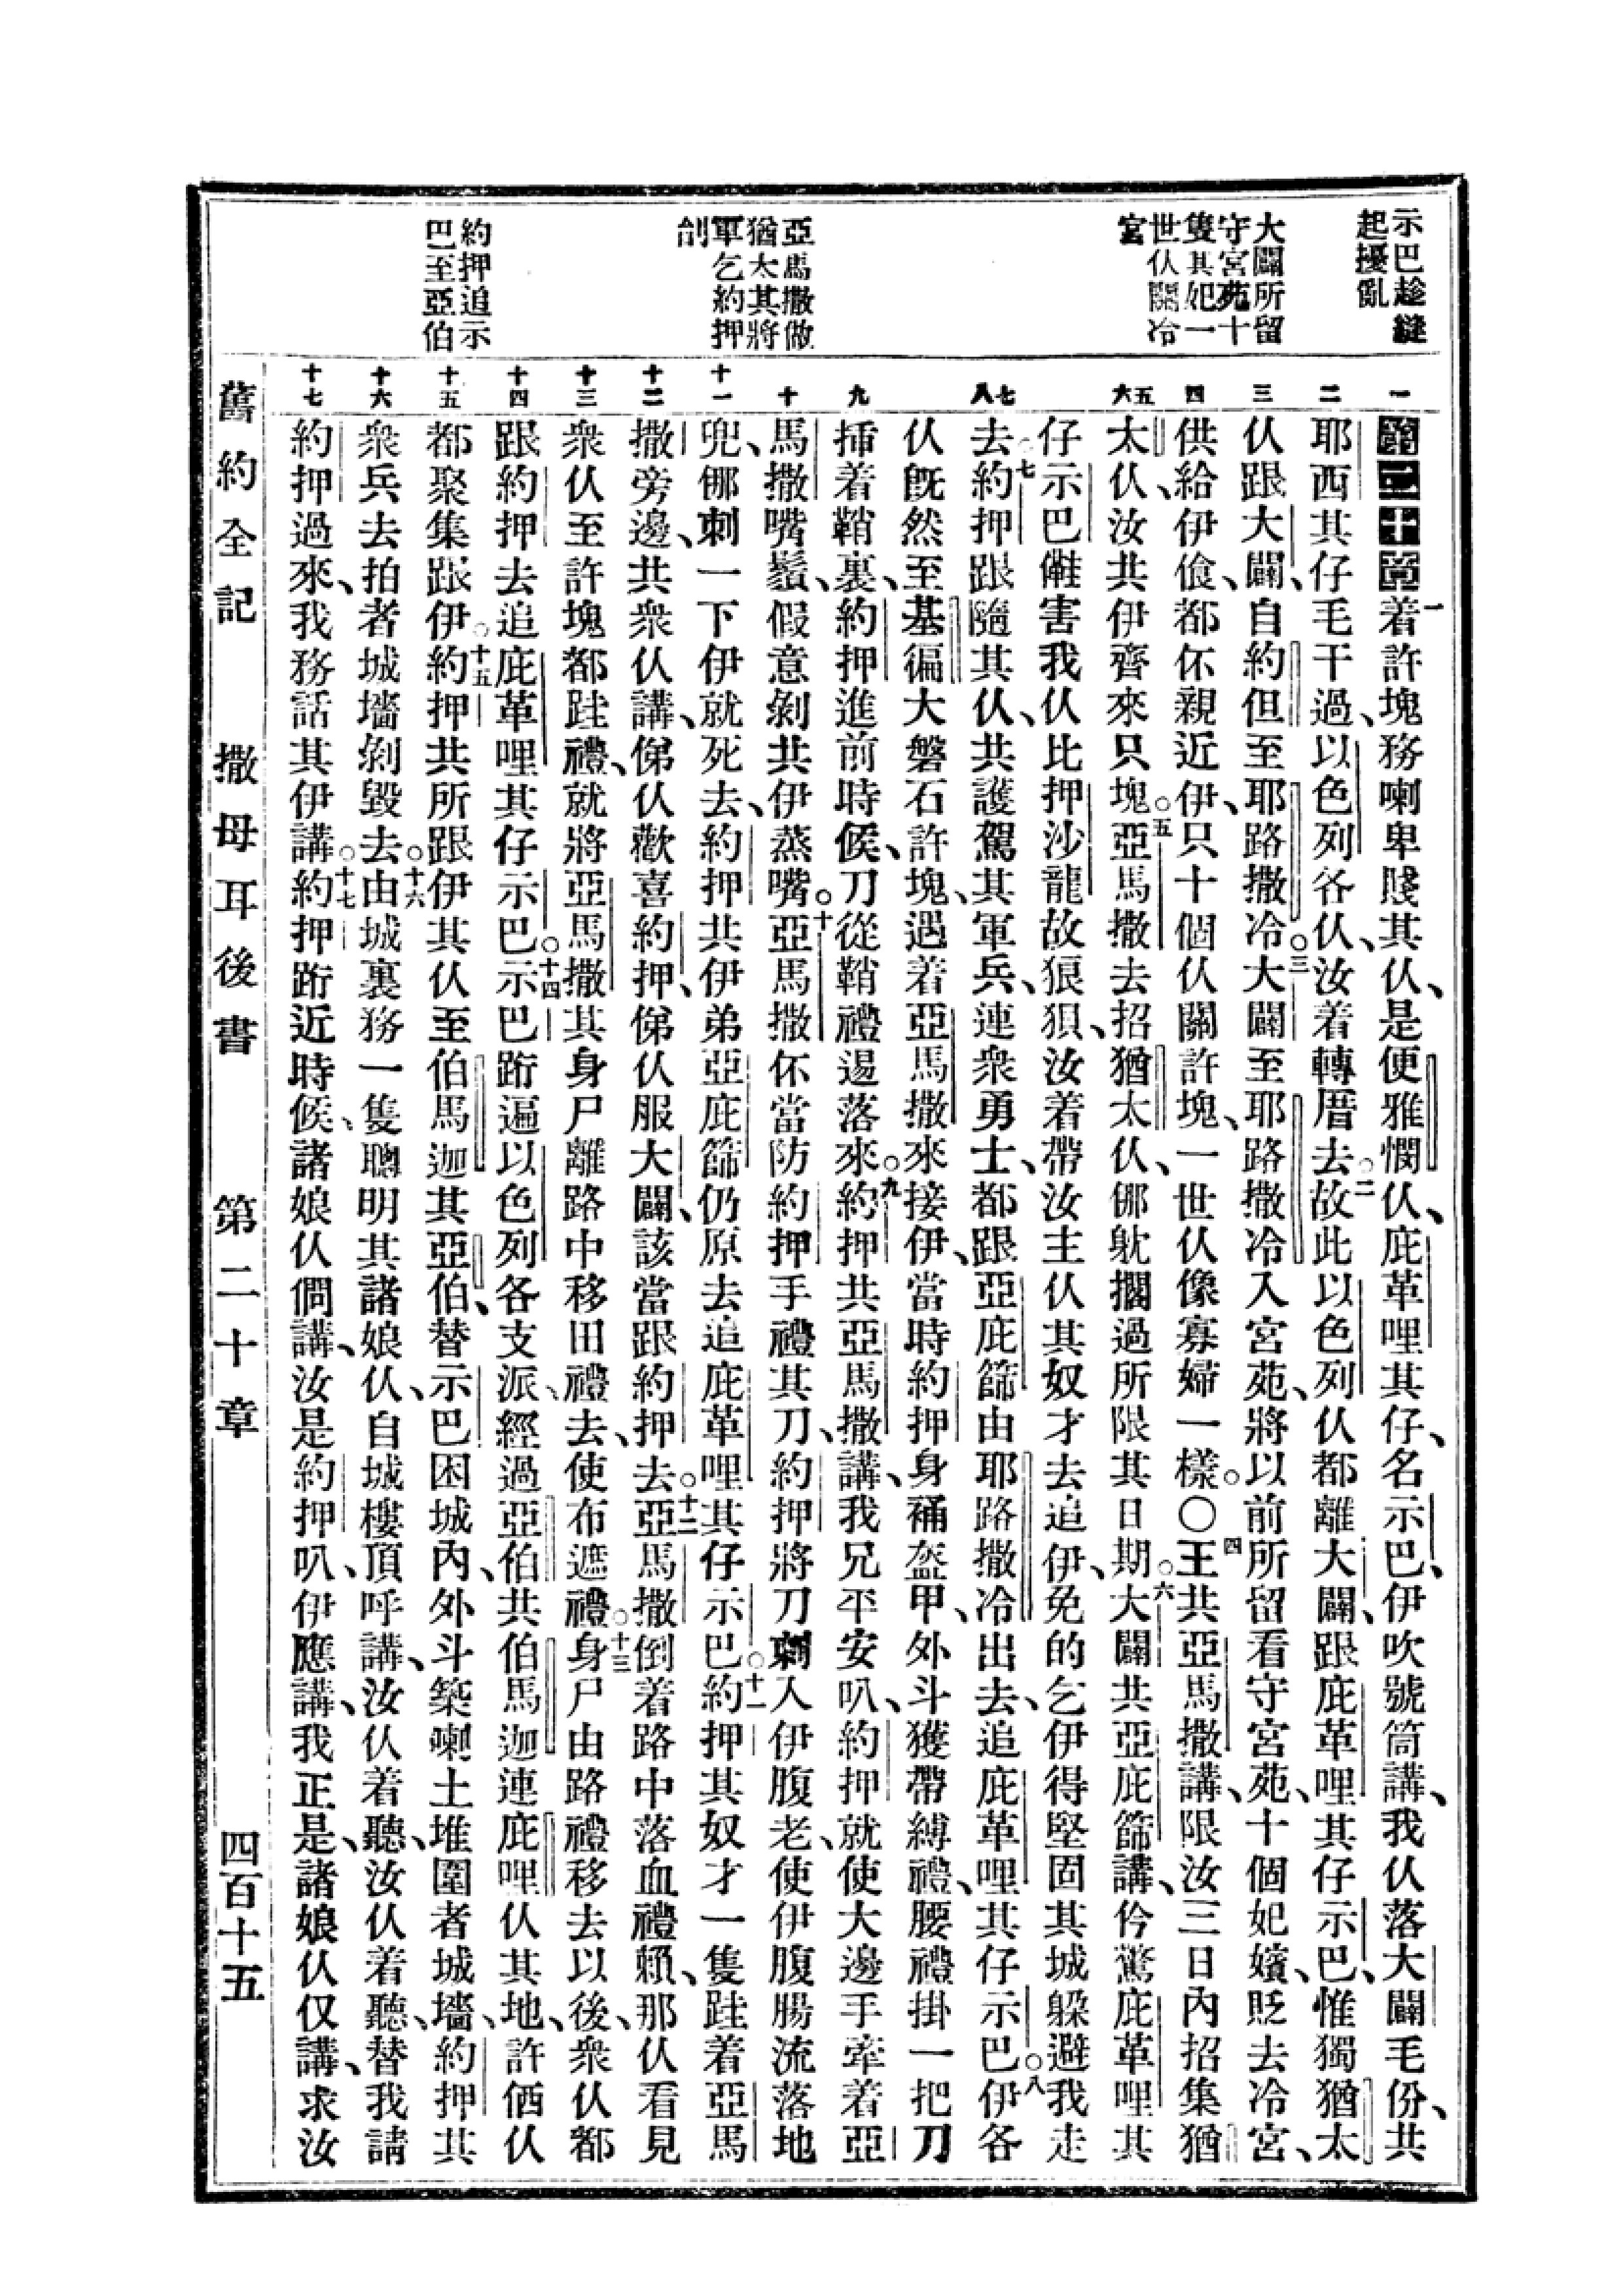 示巴趁縫
起擾亂
大闢所留
守宮苑十
隻其妃一
世仈關冷
宮
亞馬撒做
猶太其將
軍乞約押
刣
約押追示
巴至亞伯
一 二 三 四 五 六 七 八 九 十 十一 十二 十三 十四 十五 十六 十七
第二十章一着許塊務喇卑賤其仈、是便雅憫仈、庇革哩其仔、名示巴、伊吹號筒講、我仈落大闢毛份、共
耶西其仔毛干過、以色列各仈、汝着轉厝去。二故此以色列仈都離大闢、跟庇革哩其仔示巴、惟獨猶太
仈跟大闢、自約但至耶路撒冷。三大闢至耶路撒冷入宮苑、將以前所留看守宮苑、十個妃嬪、貶去冷宮、
供給伊飧、都伓親近伊、只十個仈關許塊、一世仈像寡婦一樣。〇四王共亞馬撒講、限汝三日內招集猶
太仈、汝共伊齊來只塊。五亞馬撒去招猶太仈、倻躭擱過所限其日期。六大闢共亞庇篩講、伶驚庇革哩其
仔示巴儺害我仈比押沙龍故狼狽、汝着帶汝主仈其奴才去追伊、免的乞伊得堅固其城躱避我走
去。七約押跟隨其仈、共護駕其軍兵、連衆勇士、都跟亞庇篩由耶路撒冷出去、追庇革哩其仔示巴。八伊各
仈旣然至基徧大磐石許塊、遇着亞馬撒來接伊、當時約押身裲盔甲、外斗獲帶縛禮、腰禮掛一把刀
揷着鞘裏、約押進前時候、刀從鞘禮逿落來。九約押共亞馬撒講、我兄平安叭、約押就使大邊手牽着亞
馬撒嘴鬚、假意剝共伊蒸嘴。十亞馬撒伓當防約押手禮其刀、約押將刀刺入伊腹老、使伊腹腸流落地
兜、倻刺一下伊就死去、約押共伊弟亞庇篩仍原去追庇革哩其仔示巴。十一約押其奴才一隻跬着亞馬
撒旁邊、共衆仈講、俤仈歡喜約押、俤仈服大闢、該當跟約押去。十二亞馬撒倒着路中落血禮賴、那仈看見
衆仈至許塊都跬禮、就將亞馬撒其身尸離路中移田禮去、使布遮禮。十三身尸由路禮移去以後、衆仈都
跟約押去追庇革哩其仔示巴。十四示巴跡遍以色列各支派、經過亞伯共伯馬迦連庇哩仈其地、許偤仈
都聚集跟伊。十五約押共所跟伊其仈至伯馬迦其亞伯、替示巴困城內、外斗築喇土堆圍者城墻、約押其
衆兵去拍者城墻剝毀去。十六由城裏務一隻聰明其諸娘仈、自城樓頂呼講、汝仈着聽、汝仈着聽、替我請
約押過來、我務話其伊講。十七約押跡近時候、諸娘仈倜講、汝是約押叭、伊應講、我正是、諸娘仈仅講、求汝
舊約全記 撒母耳後書 第二十章 四百十五